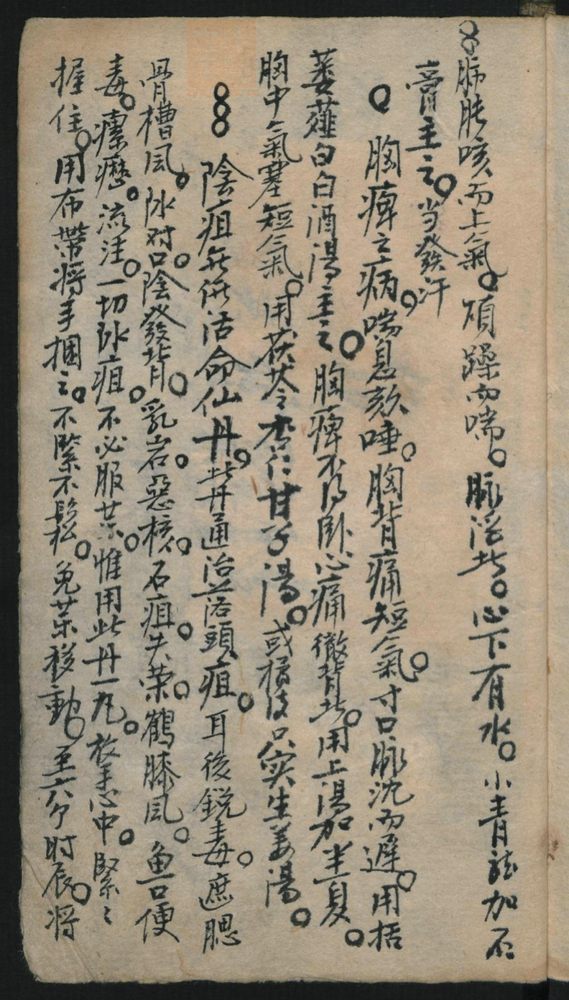 肺脹咳而上氣。煩躁而喘。脉浮者。心下有水。小青龍加石
膏主之。当發汗
胸痺之病。喘息欬唾。胸背痛短氣。寸口脉沈而遲。用栝
蔞薤白白酒湯主之。胸痺不得卧。心痛徹背者。用上湯加半夏。
胸中氣塞短氣。用茯苓杏仁甘子湯。或橘皮只实生姜湯。
陰疽無價活命仙丹。此丹通治落頭疽。耳後銳毒。遮腮
骨槽風。氷对口陰發背。乳岩惡核。石疽失荣。鶴膝風。魚口便
毒。瘰癧。流注。一切氷疽。不必服藥。惟用此丹一丸。放手心中。緊〻
握住。用布帶將手捆之。不緊不鬆。免藥移動。至六个时辰。将